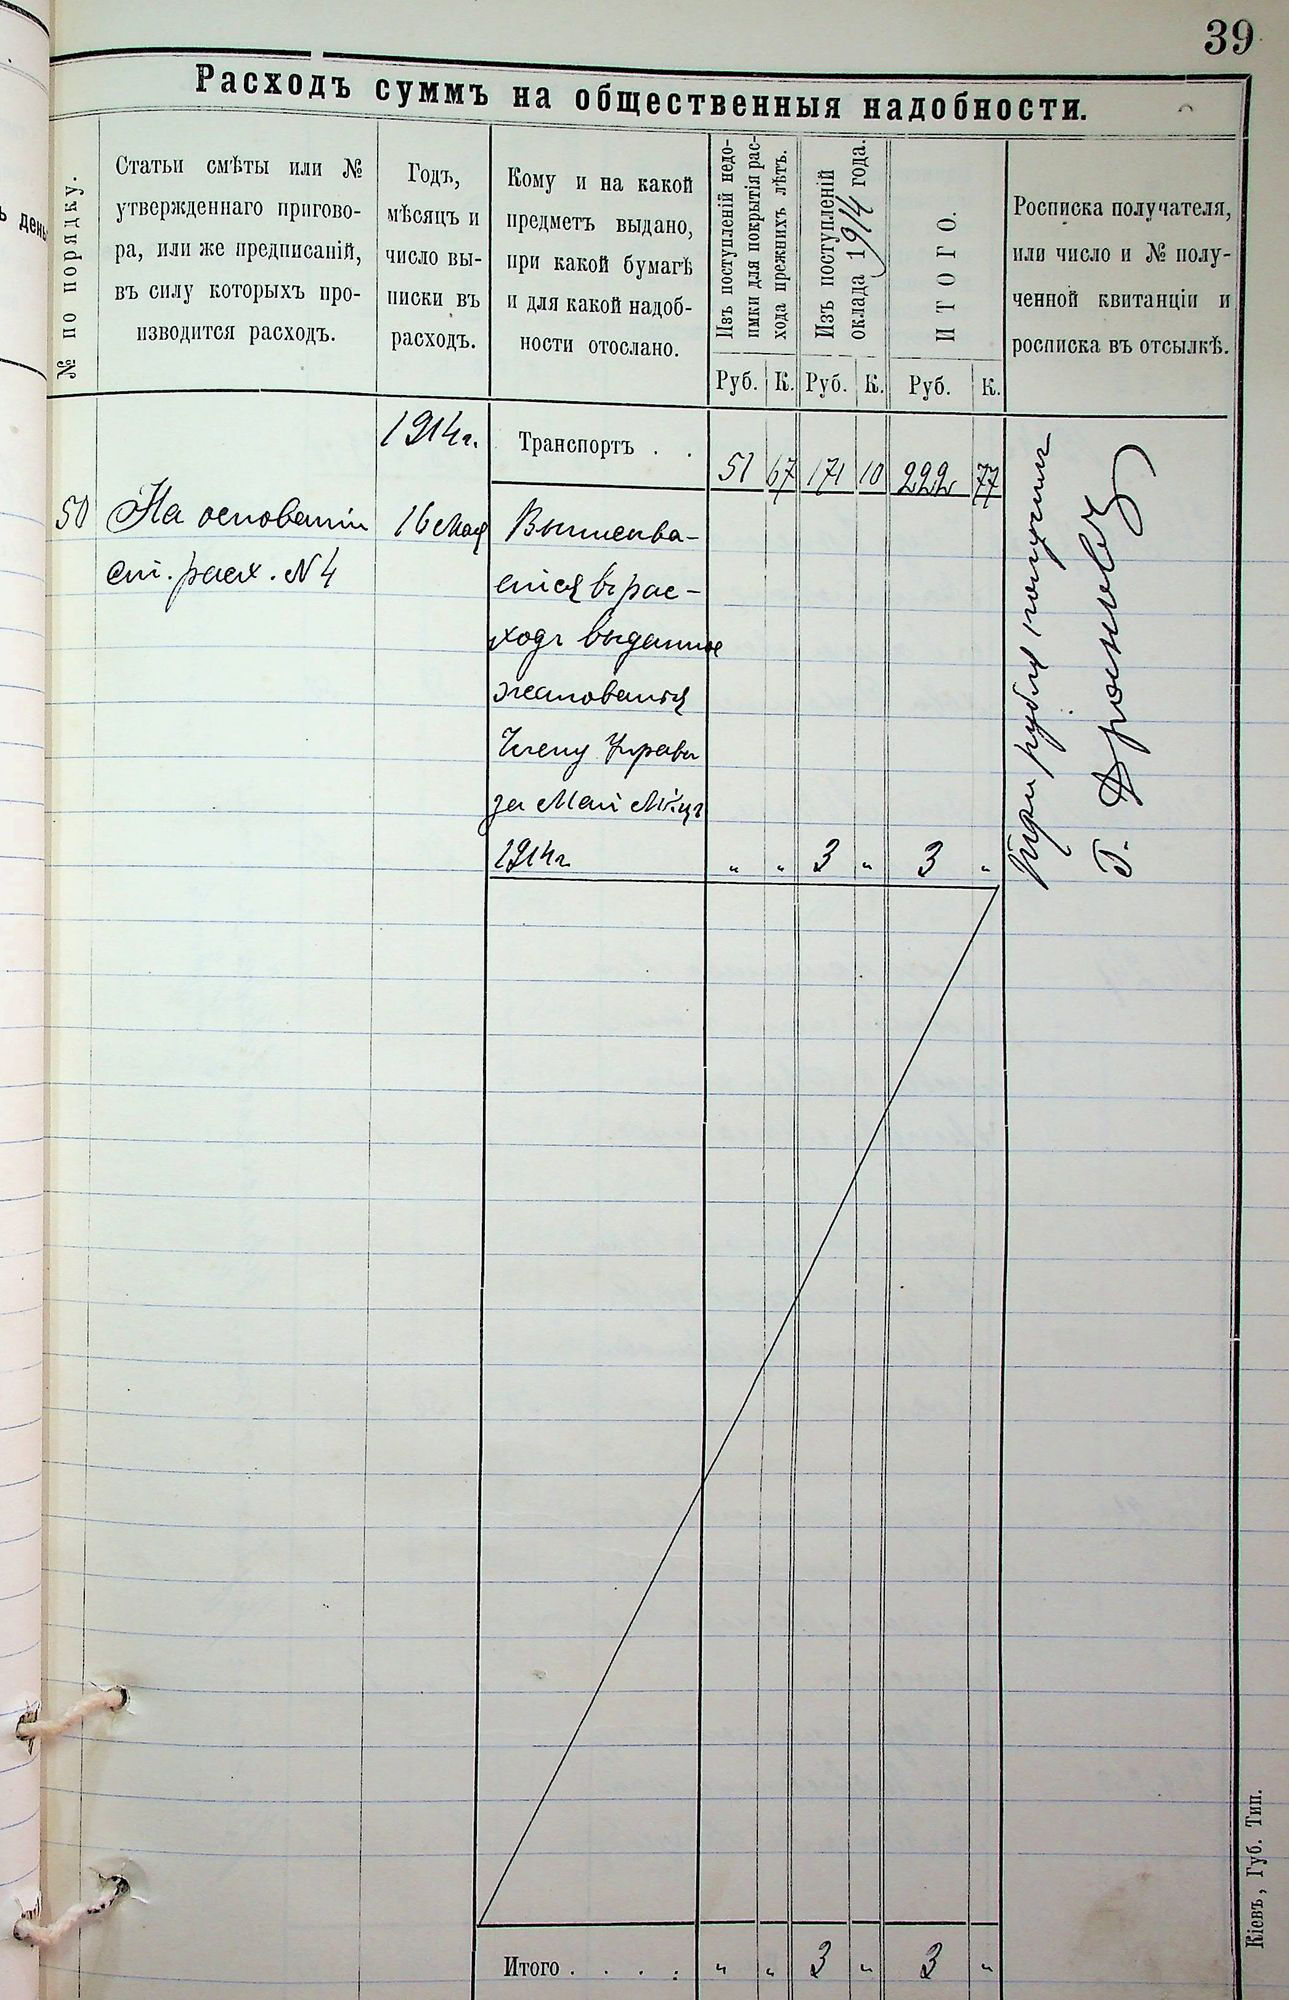 39
Расходъ суммъ на общественныя надобности.
№ по порядку.
Статьи смѣты или №
утвержденнаго пригово-
ра, или же предписаній,
въ силу которыхъ про-
изводится расходъ.
Годъ,
мѣсяцъ и
число вы-
писки въ
расходъ.
Кому и на какой
предметъ выдано,
при какой бумагѣ
и для какой надоб-
ности отослано.
Изъ поступленій недо-
имки для покрытія рас-
хода прежнихъ лѣтъ.
Изъ поступленій
оклада 1914 года.
ИТОГО.
Росписка получателя,
или число и № полу-
ченной квитанціи и
росписка въ отсылкѣ.
Руб. К. Руб. К. Руб. К.
1914 г. Транспортъ . . 51 67 171 10 222 77
50 На основаніи 16 Мая Выписыва-
ст. расх. N 4 ется въ рас-
ходъ выданное
жалованья
Члену Управы
за Май М-цъ
1914 г. „ „ 3 „ 3 „
Три рубля получилъ
Г.
Итого . . . . „ „ 3 „ 3 „
Кіевъ, Губ. Тип.
ъ день